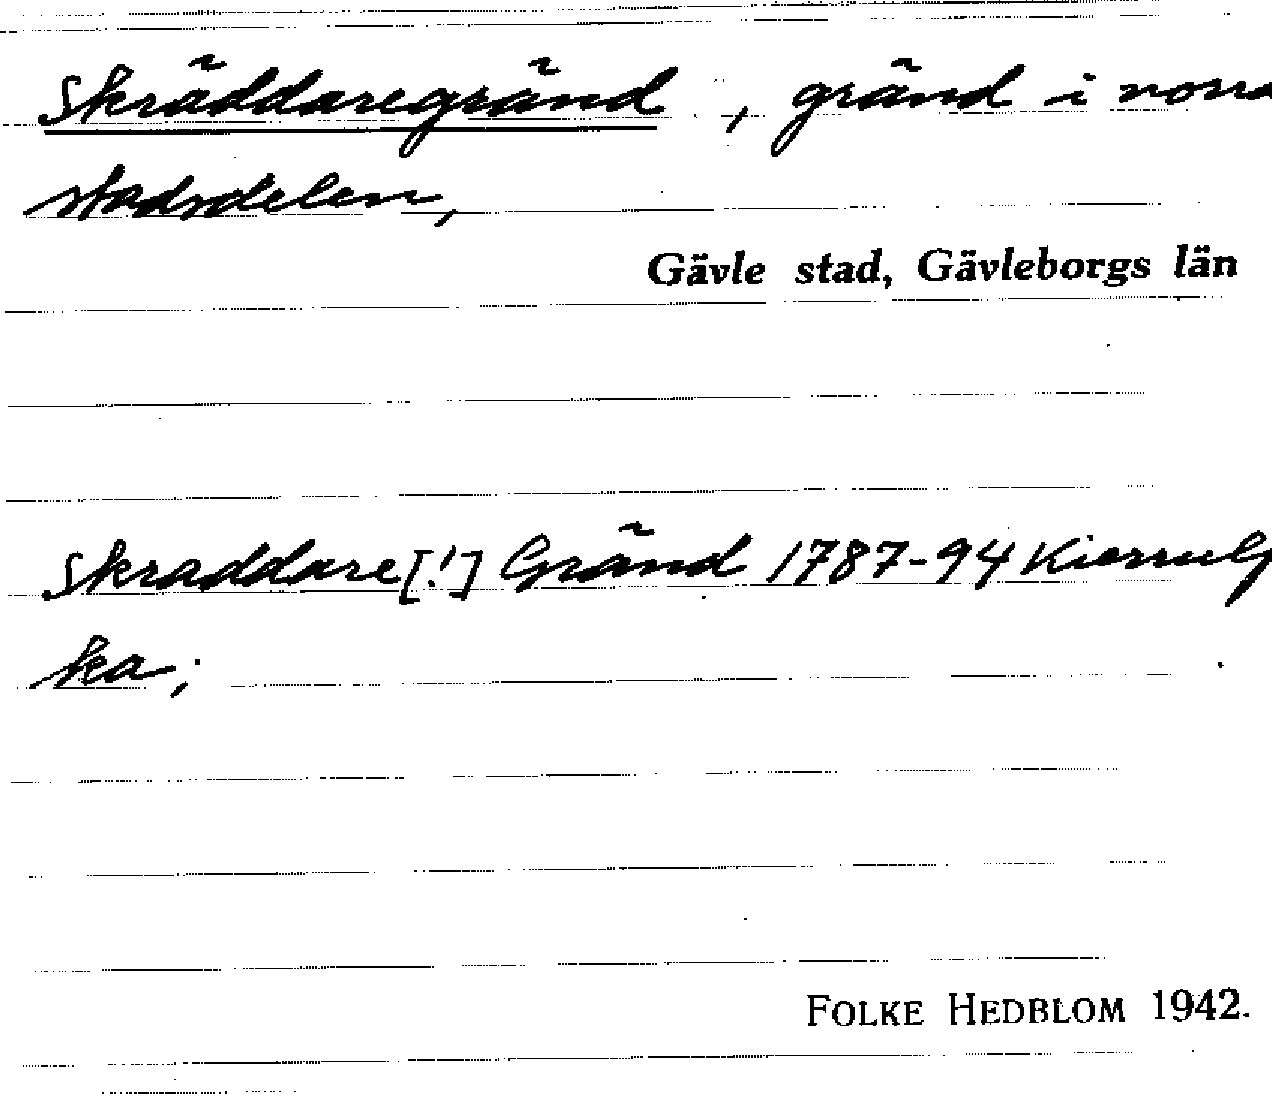 Skräddaregränd, gränd i norra
stadsdelen,
Gävle stad, Gävleborgs län
Skraddare[!] Gränd 1787-94 Kierrulf
ka;
FOLKE HEDBLOM 1942.